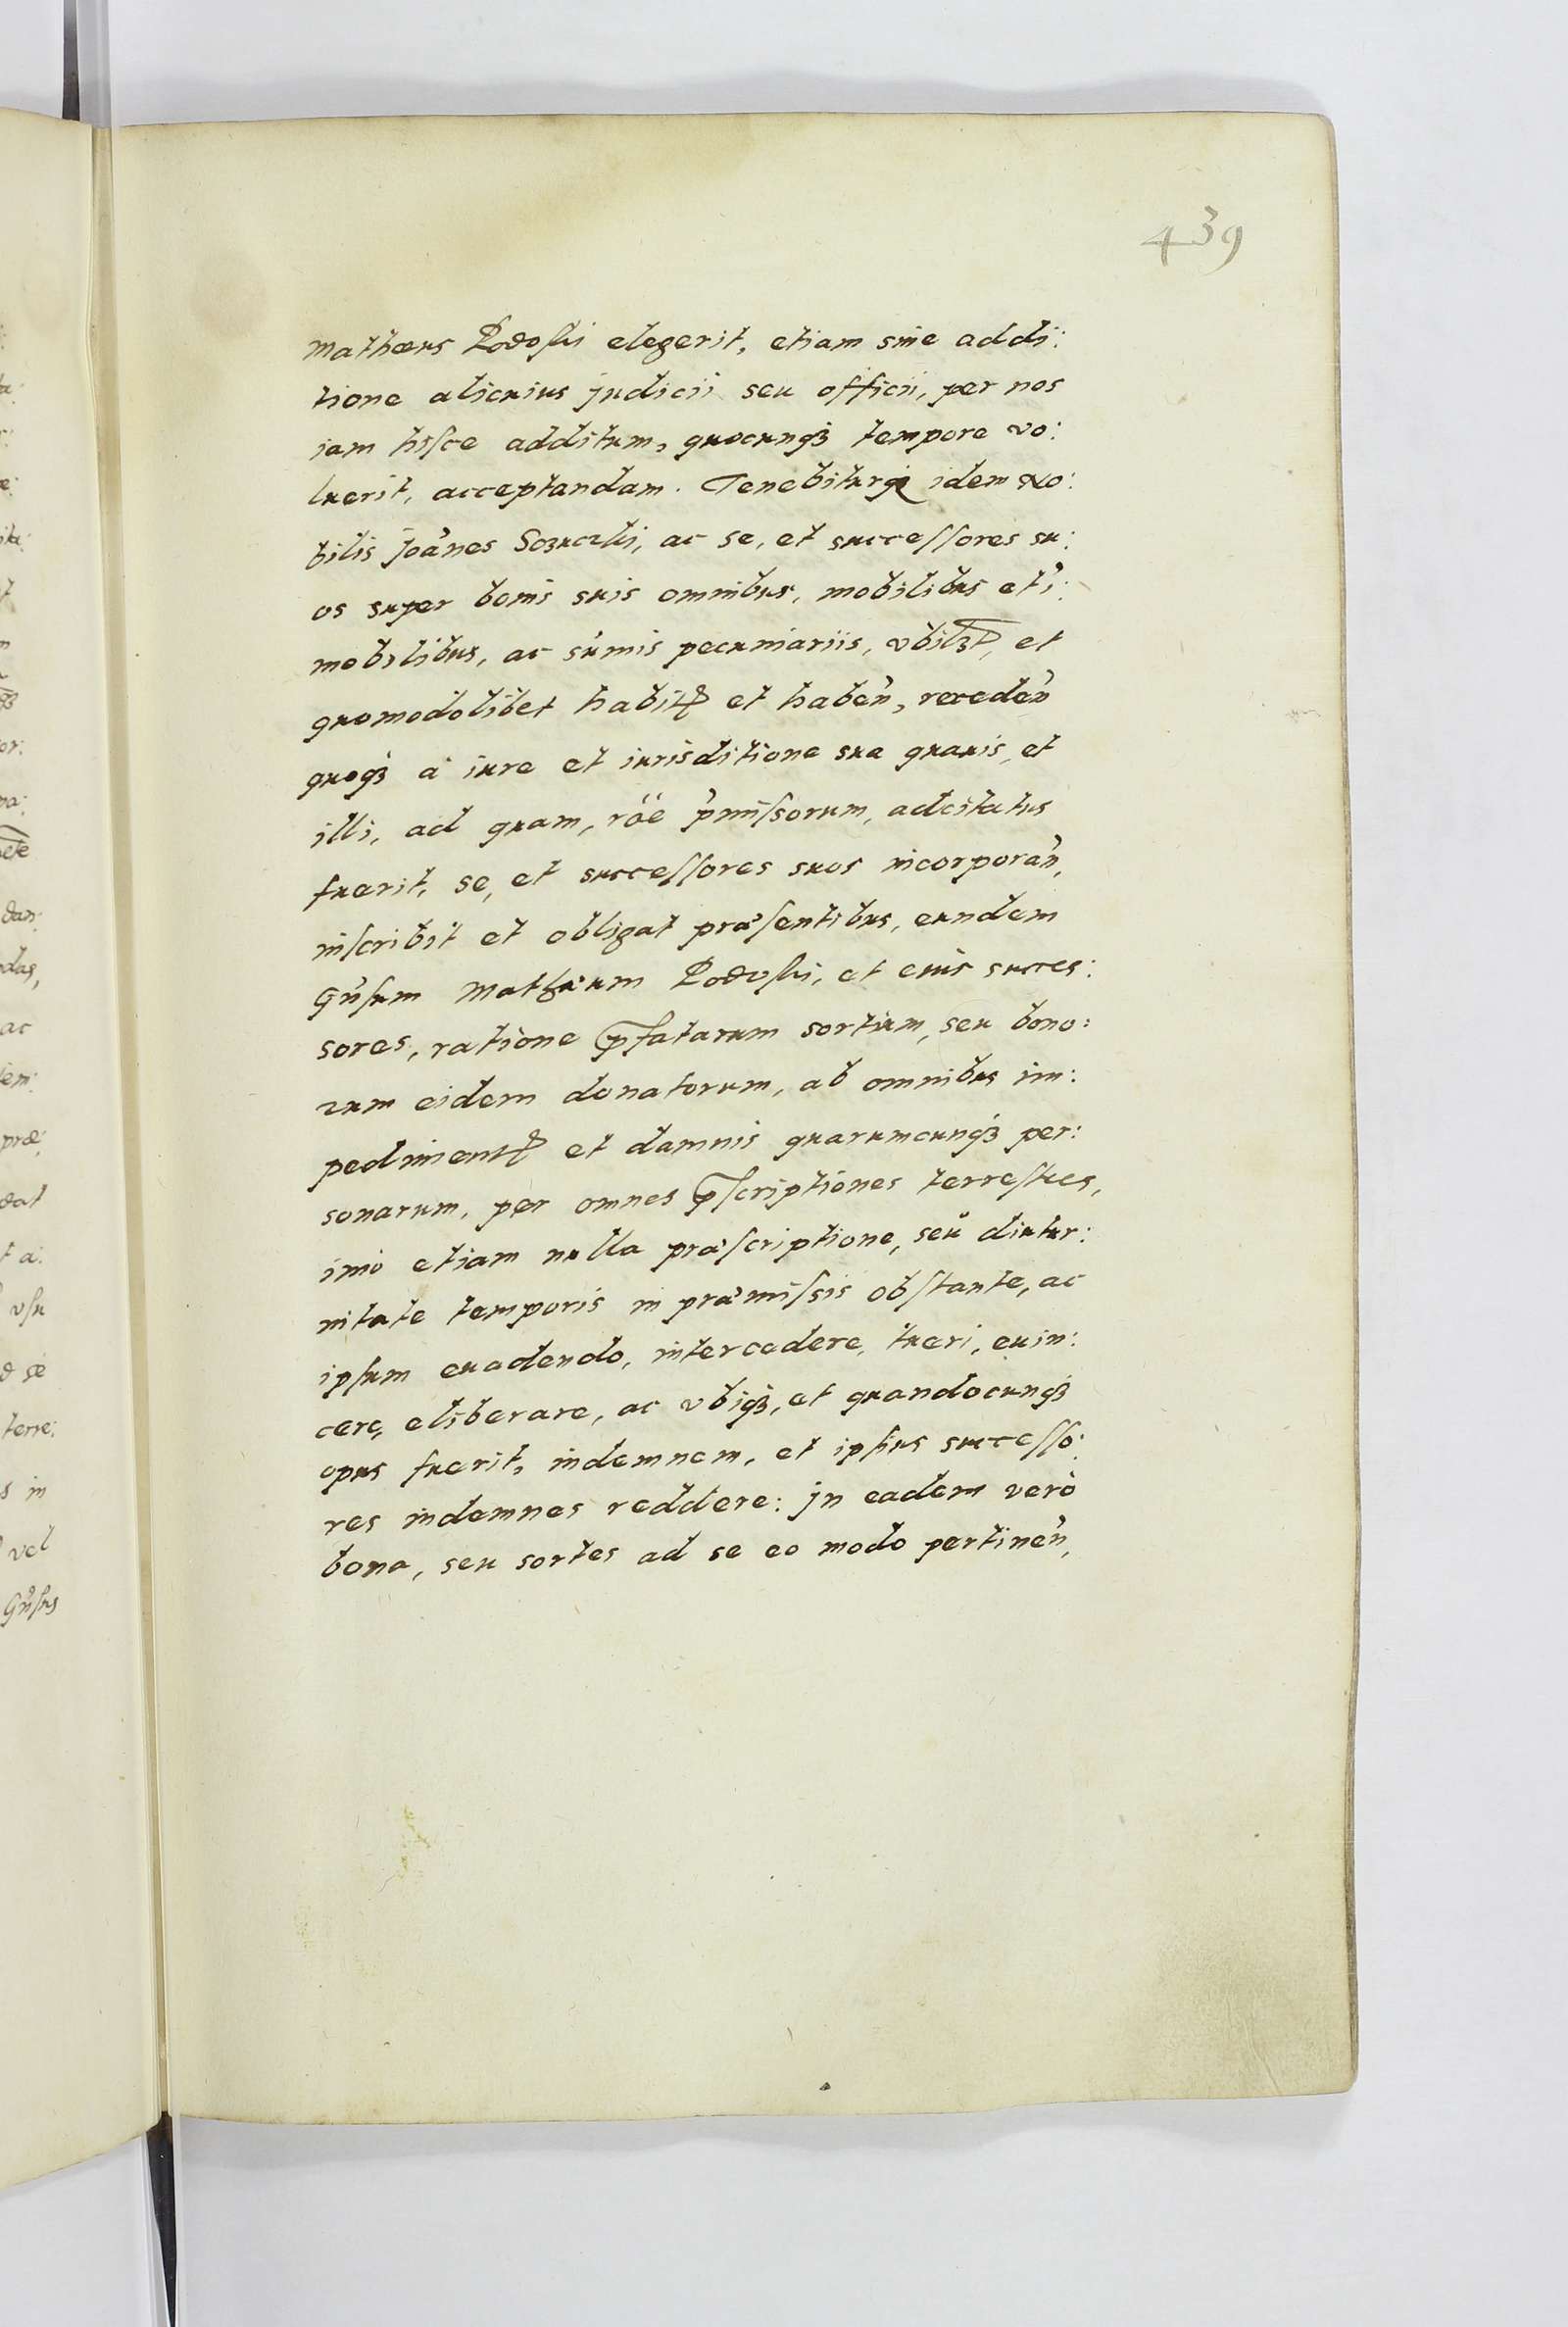 439
Mathæus Podoski elegerit, etiam sine addi:
tione alicuius judicii seu officii, per nos
iam hisce additum, quocunqȝ tempore vo:
luerit, acceptandam. Tenebiturqȝ idem No:
bilis Joãnes Sozuczki, ac se, et successores su:
os super bonis suis omnibus, mobilibus et ĩ:
mobilibus, ac sũmis pecuniariis, vbilȝt, et
quomodolibet habit et habeñ, recedeñ
quoqȝ à iure et iurisditione sua quauis, et
illi, ad quam, rõe p̃missorum, adcitatus
fuerit, se, et successores suos incorporañ,
inscribit et obligat præsentibus, eundem
Gñsum Mathæum Podoski, et eius succes:
sores, ratione p̃fatarum sortium, seu bono:
rum eidem donatorum, ab omnibus im:
pediment et damnis quarumcunqȝ per:
sonarum, per omnes p̃scriptiones terrestres,
imo etiam nulla præscriptione, seu diutur:
nitate temporis in præmissis obstante, ac
ipsum euadendo, intercedere, tueri, euin:
cere, eliberare, ac vbiqȝ, et quandocunqȝ
opus fuerit, indemnem, et ipsius successo:
res indemnes reddere: Jn eadem verò
bona, seu sortes ad se eo modo pertineñ,
ac
præ:
dat
t a:
vsu
terre:
s in
vel
Gñsus